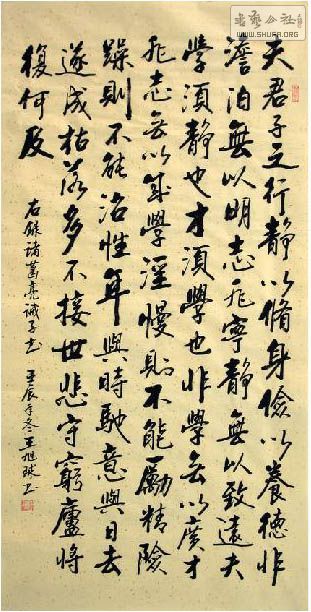 夫君子之行靜以脩身儉以養德非
澹泊無以明志非寧靜無以致遠夫
學須靜也才須學也非學无以廣才
非志无以成學淫慢則不能勵精險
躁則不能治性年與時馳意與日去
遂成枯落多不接世悲守窮廬將
復何及
右錄諸葛亮誡子書 壬辰年冬王旭
書藝公社
WWW.SHUFA.ORG